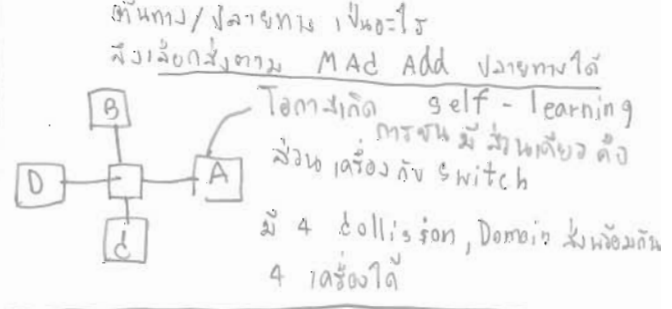 ต้นทาง/ปลายทาง เป็นอะไร
จึงเลือกส่งตาม MAC Add ปลายทางได้
B
โอกาสเกิด self-learning
การชน มี ส่วนเดียว คือ
D
A
ส่วน เครื่อง กับ switch
C
มี 4 collision, Domain ส่งพร้อมกัน
4 เครื่องได้